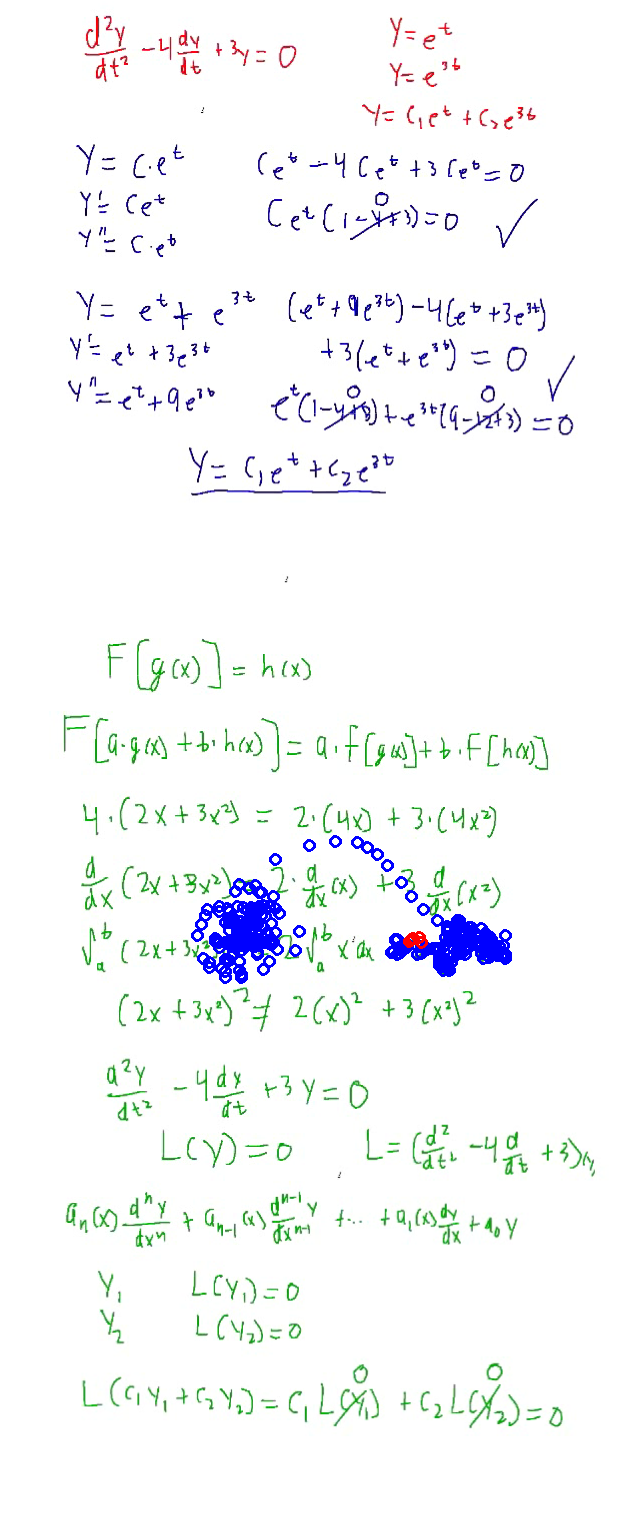 d²y/dt² - 4 dy/dt + 3y = 0
Y = e^t
Y = e^3t
Y = C₁e^t + C₂e^3t
Y = C·e^t
Y' = Ce^t
Y'' = C·e^t
Ce^t - 4Ce^t + 3Ce^t = 0
Ce^t(1-4+3) = 0 ✓
0
Y = e^t + e^3t
Y' = e^t + 3e^3t
Y'' = e^t + 9e^3t
(e^t + 9e^3t) - 4(e^t + 3e^3t)
+3(e^t + e^3t) = 0 ✓
0 0
e^t(1-4+3) + e^3t(9-12+3) = 0
Y = C₁e^t + C₂e^3t
F[g(x)] = h(x)
F[a·g(x) + b·h(x)] = a·f[g(x)] + b·F[h(x)]
4·(2x + 3x²) = 2·(4x) + 3·(4x²)
d/dx (2x + 3x²) 2· d/dx (x) + 3 d/dx (x²)
∫_a^b (2x + 3x 2 ∫_a^b x dx
(2x + 3x²)² ≠ 2(x)² + 3(x²)²
d²y/dt² - 4 dy/dt + 3y = 0
L(y) = 0 L = (d²/dt² - 4 d/dt + 3)
aₙ(x) dⁿy/dxⁿ + aₙ₋₁(x) dⁿ⁻¹y/dxⁿ⁻¹ + ... + a₁(x) dy/dx + a₀y
Y₁ L(Y₁) = 0
Y₂ L(Y₂) = 0
0 0
L(C₁Y₁ + C₂Y₂) = C₁L(Y₁) + C₂L(Y₂) = 0